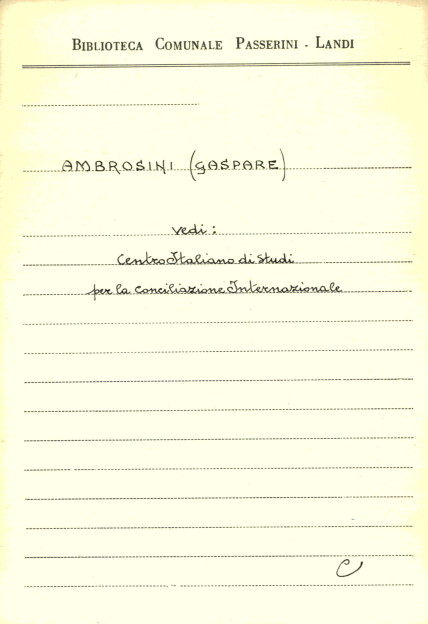 BIBLIOTECA COMUNALE PASSERINI - LANDI
AMBROSINI (GASPARE)
vedi:
Centro Italiano di Studi
per la Conciliazione Internazionale
C